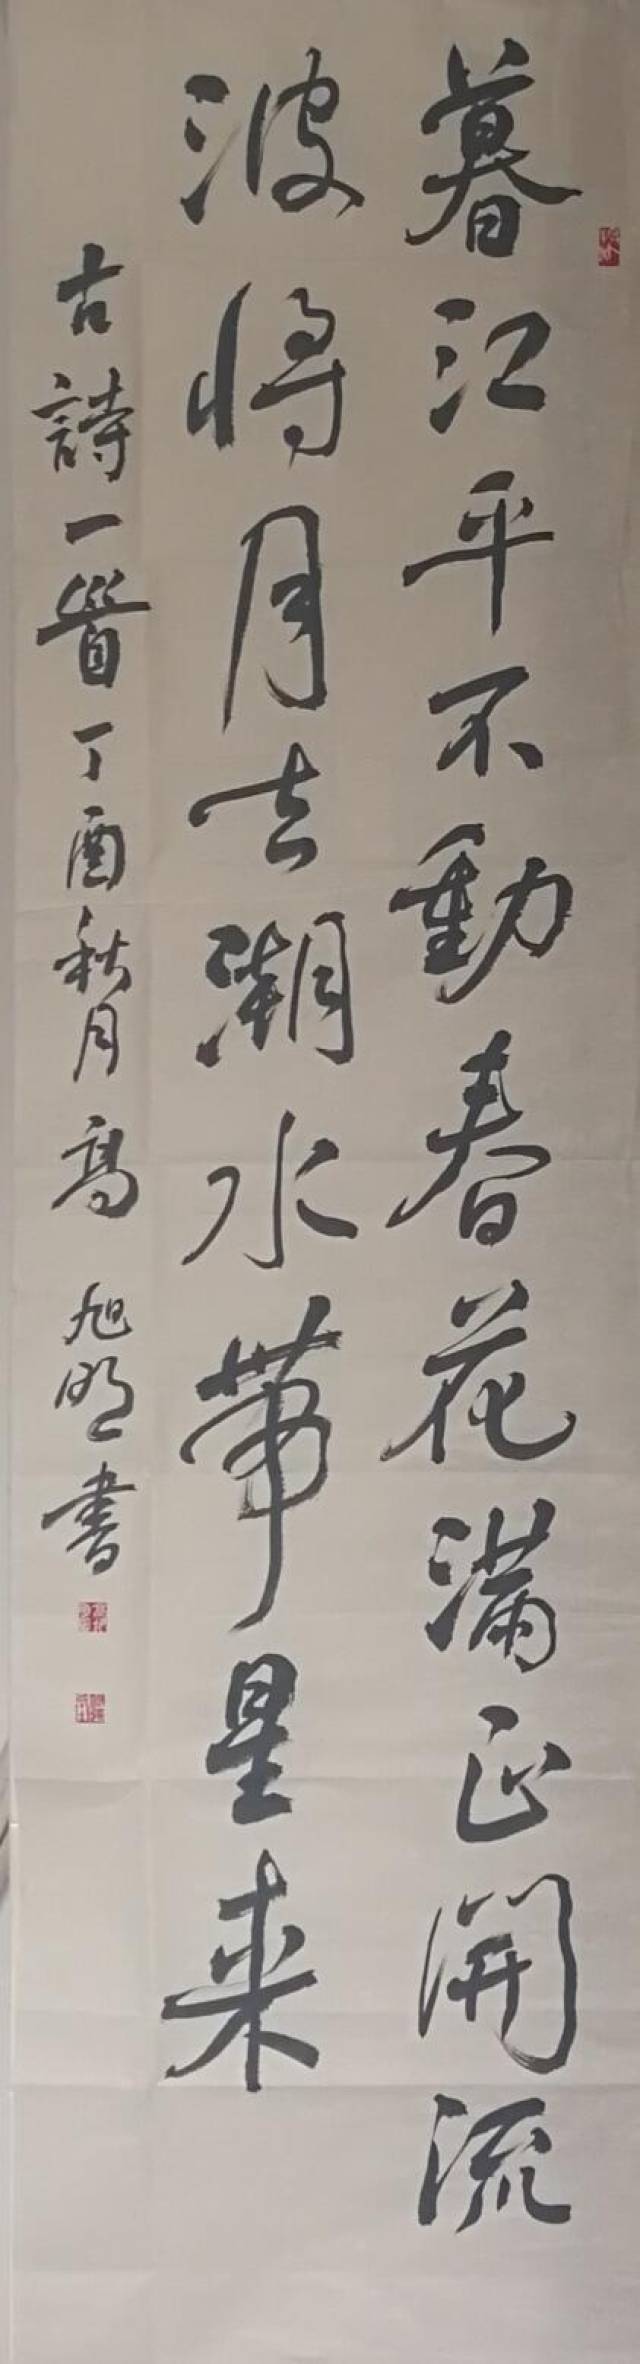 暮江平不動春花滿正開流
波將月去潮水帶星来
古詩一首丁酉秋月高旭明書